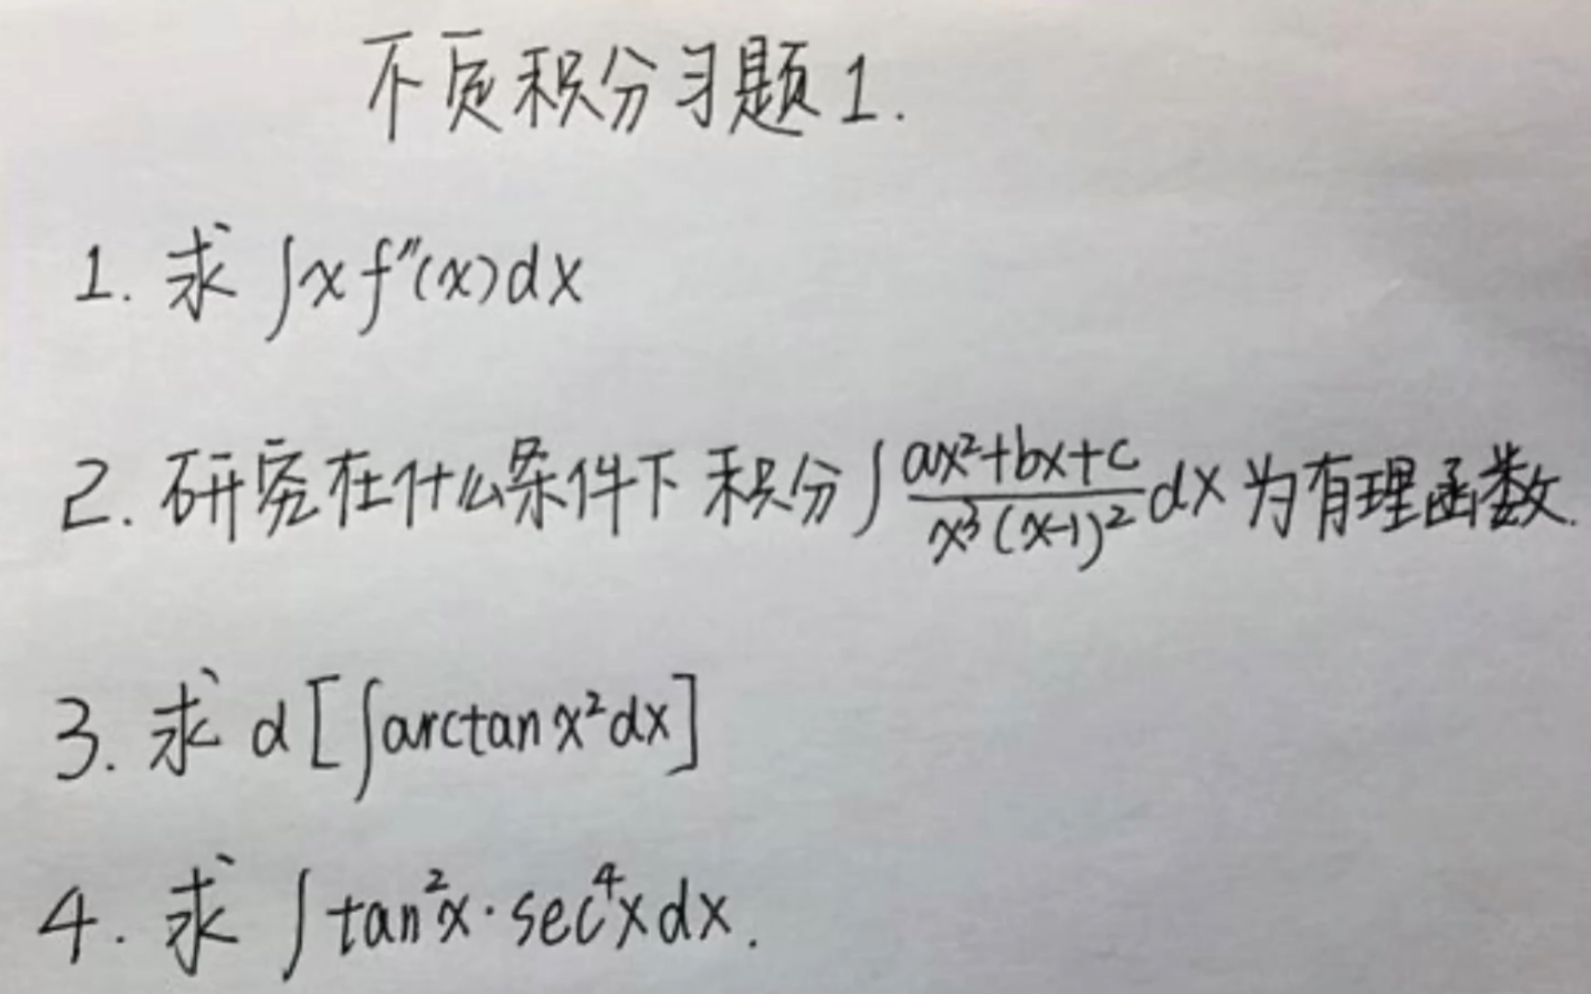 不定积分习题1.
1. 求 ∫xf″(x)dx
2. 研究在什么条件下积分∫\frac{ax²+bx+c}{x³(x-1)²}dx为有理函数.
3. 求 d[∫arctanx²dx]
4. 求 ∫tan²x·sec⁴xdx.